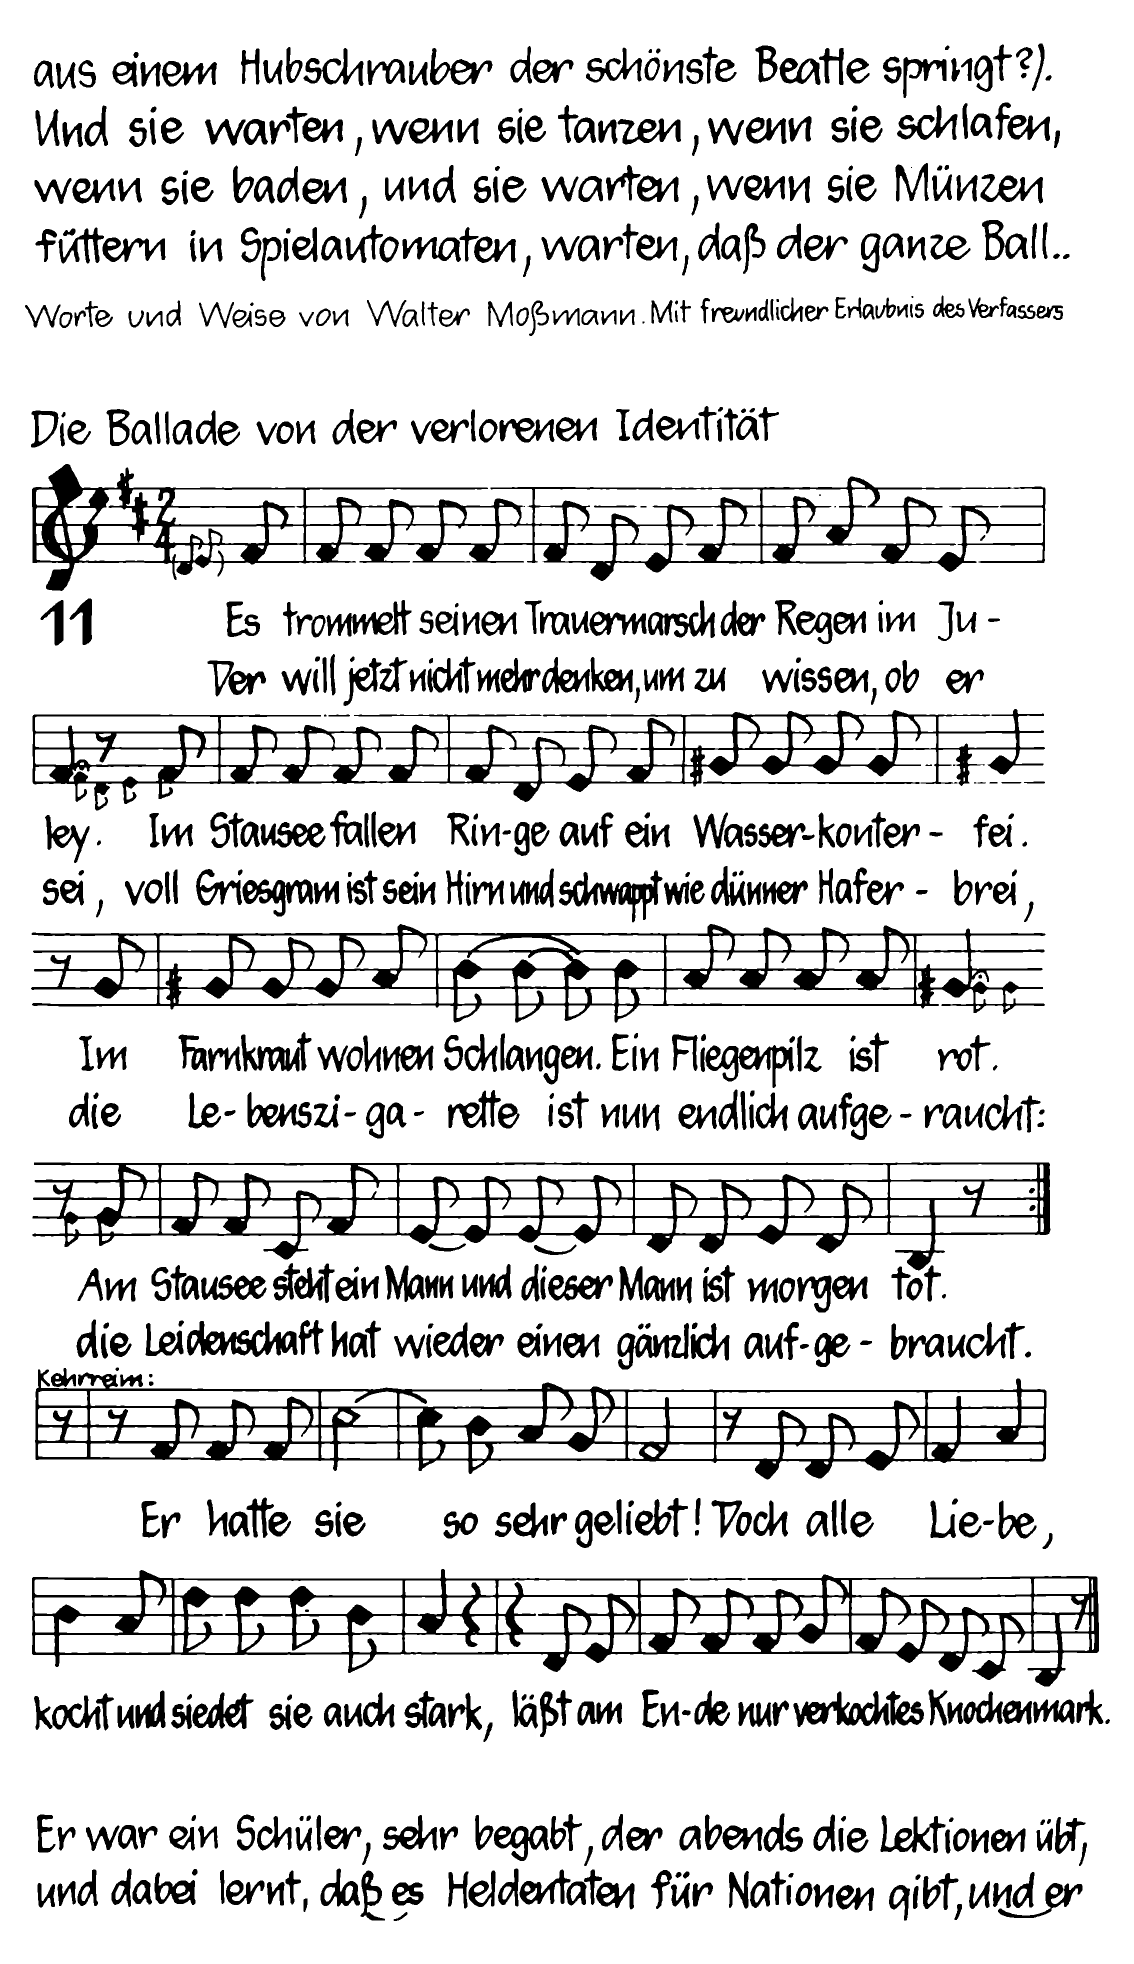 aus einem Hubschrauber der schönste Beatle springt?).
Und sie warten, wenn sie tanzen, wenn sie schlafen,
wenn sie baden, und sie warten, wenn sie Münzen
füttern in Spielautomaten, warten, daß der ganze Ball..
Worte und Weise von Walter Moßmann. Mit freundlicher Erlaubnis des Verfassers
Die Ballade von der verlorenen Identität
2
4
11
Es trommelt seinen Trauermarsch der Regen im Ju-
Der will jetzt nicht mehr denken, um zu wissen, ob er
ley. Im Stausee fallen Rin-ge auf ein Wasser-konter- fei.
sei, voll Griesgram ist sein Hirn und schwappt wie dünner Hafer- brei,
Im Farnkraut wohnen Schlangen. Ein Fliegenpilz ist rot.
die Le-benszi-ga- rette ist nun endlich aufge-raucht:
Am Stausee steht ein Mann und dieser Mann ist morgen tot.
die Leidenschaft hat wieder einen gänzlich auf-ge- braucht.
Kehrreim:
Er hatte sie so sehr geliebt! Doch alle Lie-be,
kocht und siedet sie auch stark, läßt am En-de nur verkochtes Knochenmark.
Er war ein Schüler, sehr begabt, der abends die Lektionen übt,
und dabei lernt, daß es Heldentaten für Nationen gibt, und er